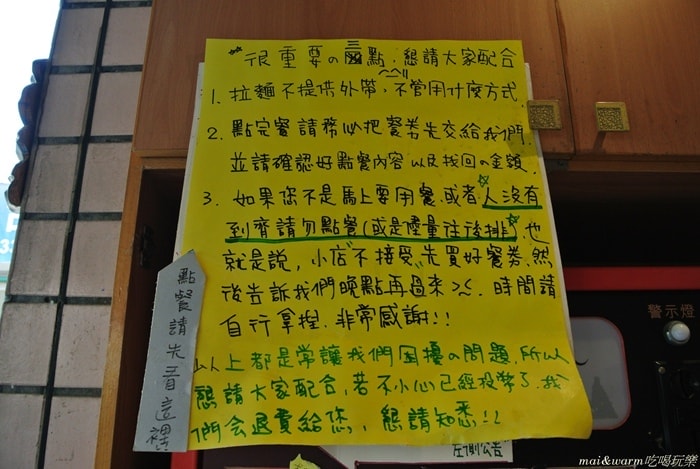 很重要の三點，懇請大家配合
1. 拉麵不提供外帶，不管用什麼方式
2. 點完餐請務必把餐券先交給我們，
並請確認好點餐內容以及找回の金額。
3. 如果您不是馬上要用餐，或者人沒有
到齊請勿點餐(或是儘量往後排)，也
就是說，小店不接受先買好餐券，然
後告訴我們晚點再過來>"<。時間請
自行拿捏，非常感謝!!
以上都是常讓我們困擾の問題，所以
懇請大家配合，若不小心已經投幣了，我
們會退費給您，懇請知悉!!
點餐請先看這裡
警示燈
左側公告
mai&warm吃喝玩樂